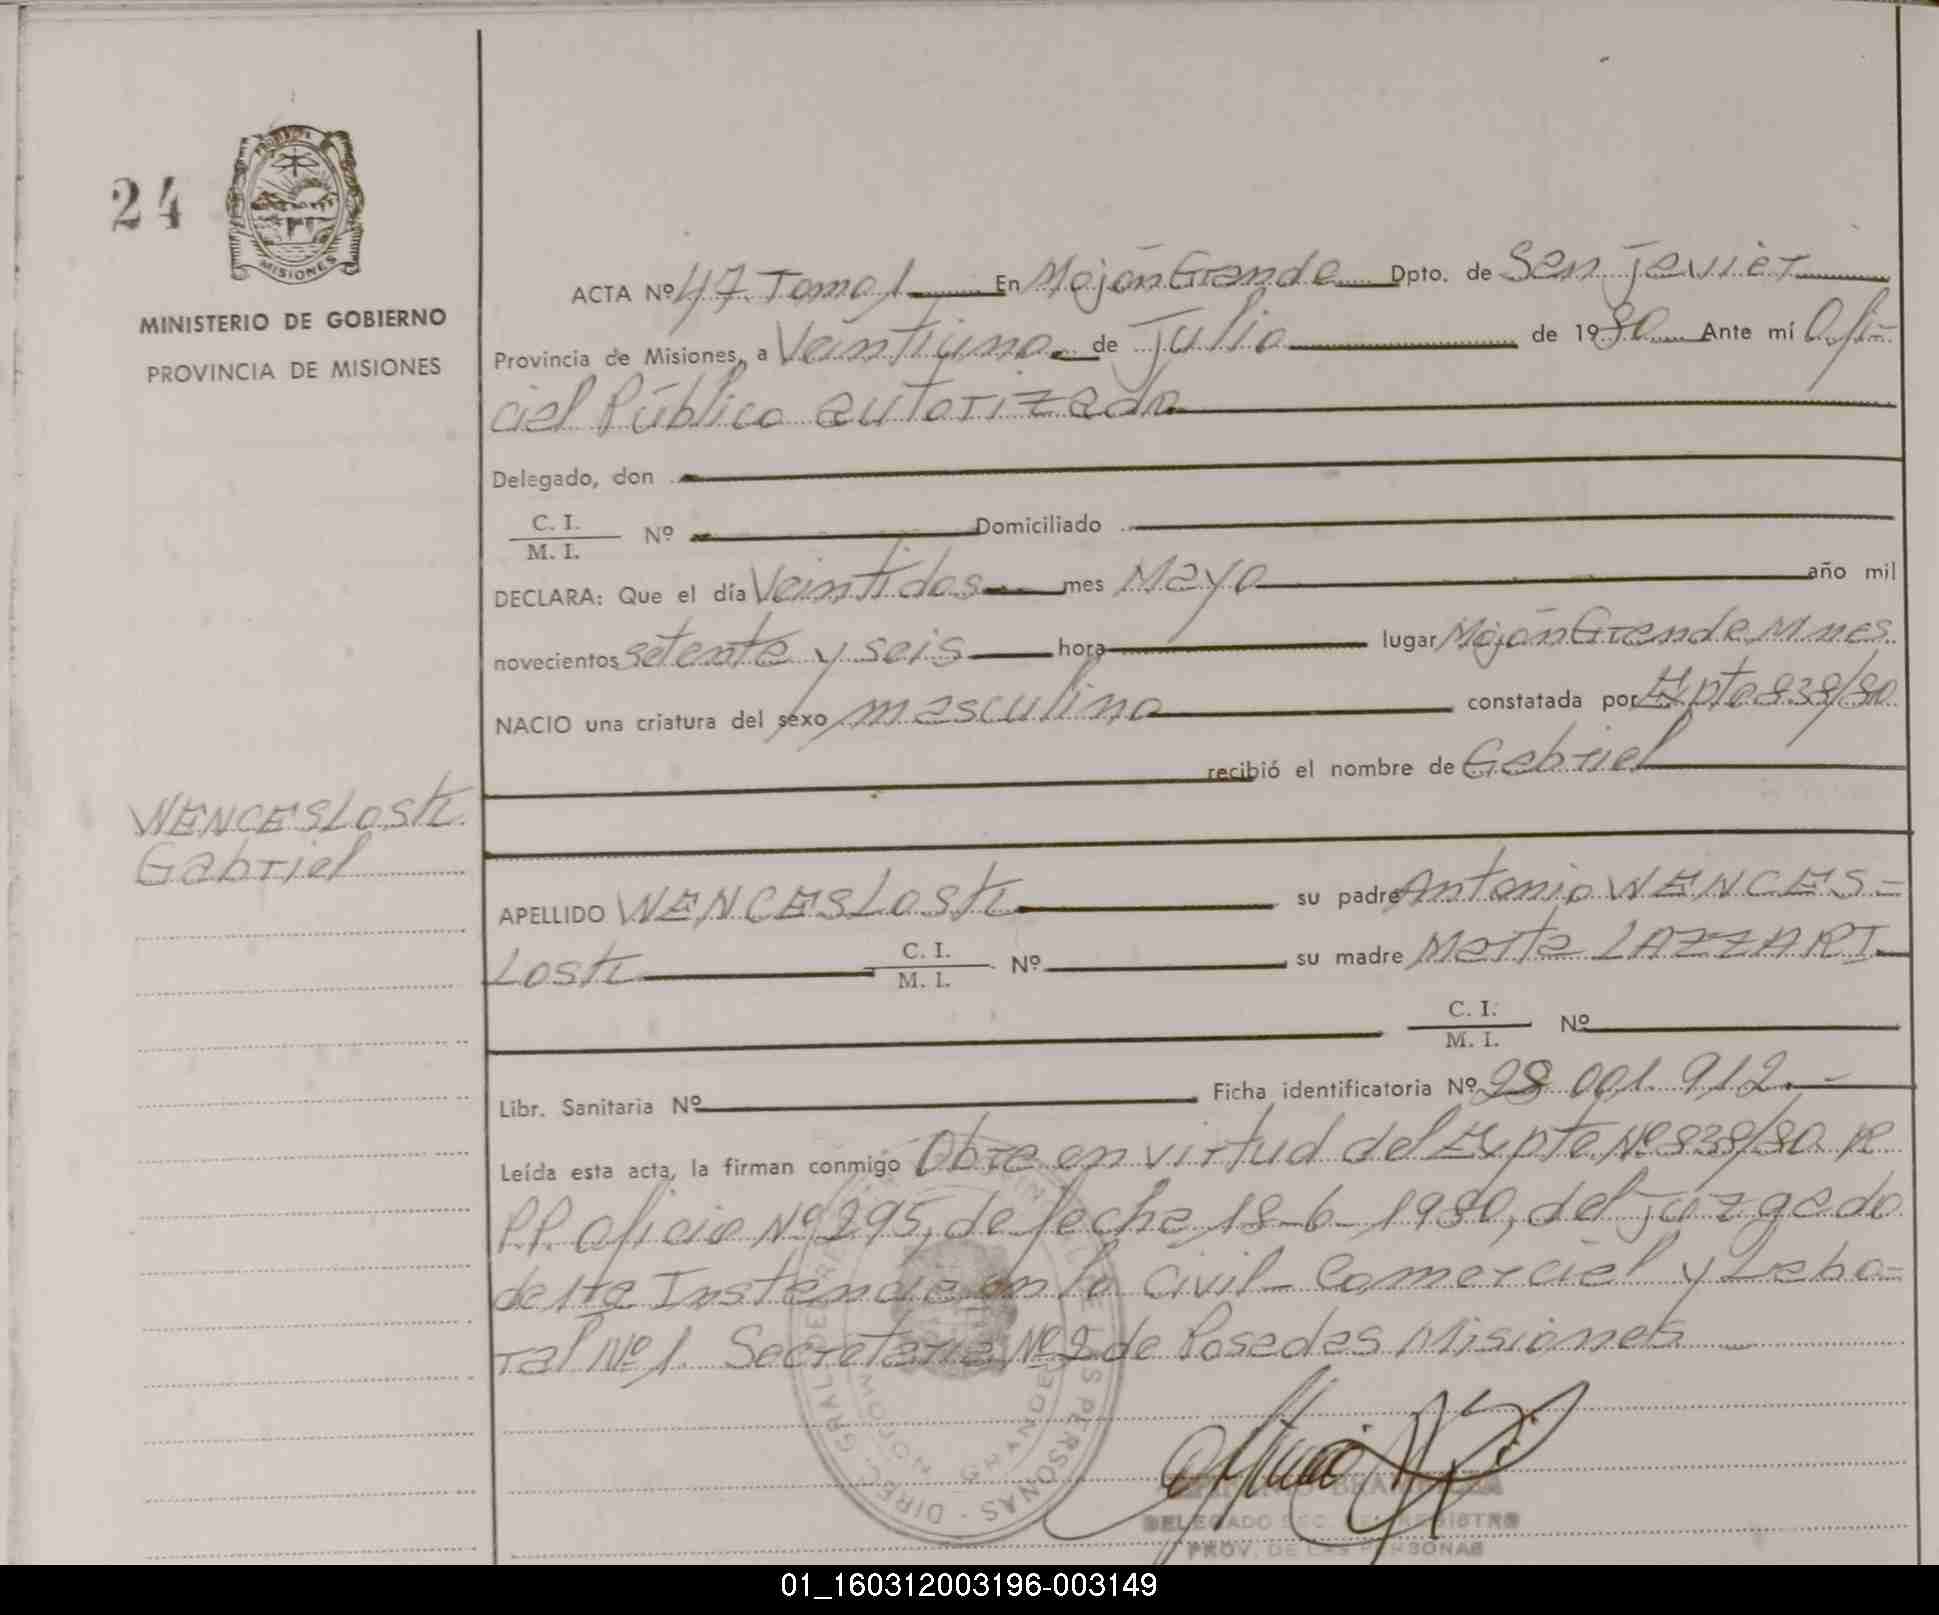 24
MISIONES
MINISTERIO DE GOBIERNO
PROVINCIA DE MISIONES
WENCESLOSKI
Gabriel
ACTA Nº 47 Tomo 1 En Mojón Grande Dpto. de San Javier
Provincia de Misiones, a Veintiuno de Julio de 1980 Ante mí Ofi-
cial Público autorizado
Delegado, don
C. I.
M. I. Nº Domiciliado
DECLARA: Que el día Veintidos mes Mayo año mil
novecientos setenta y seis hora lugar Mojón Grande Mnes
NACIO una criatura del sexo masculino constatada por Expte 838/80
recibió el nombre de Gabriel
APELLIDO WENCESLOSKI su padre Antonio WENCES-
LOSKI C. I. M. I. Nº su madre Marta LAZZARI
C. I.
M. I. Nº
Libr. Sanitaria Nº Ficha identificatoria Nº 28.001.912.-
Leída esta acta, la firman conmigo Obra en virtud del Expte Nº 838/80 R
P.P. Oficio Nº 295, de fecha 18-6-1980, del Juzgado
de 1ra Instancia en lo Civil- Comercial y Labo-
ral Nº 1. Secretaria Nº 2 de Posadas Misiones
MOJON GRANDE
DIREC. GRAL. DE LAS PERSONAS
DELEGADO SEC. DEL REGISTRO
PROV. DE LAS PERSONAS
01_160312003196-003149